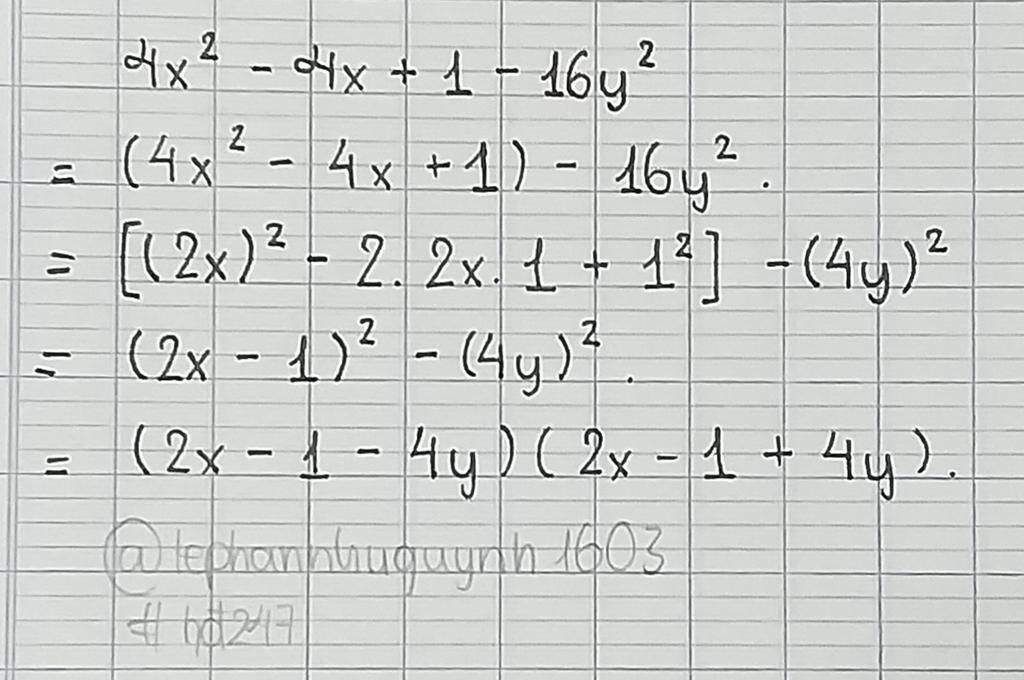 4x² - 4x + 1 - 16y²
= (4x² - 4x + 1) - 16y².
= [(2x)² - 2. 2x. 1 + 1²] - (4y)²
= (2x - 1)² - (4y)².
= (2x - 1 - 4y)(2x - 1 + 4y).
@lephanhhuquynh1603